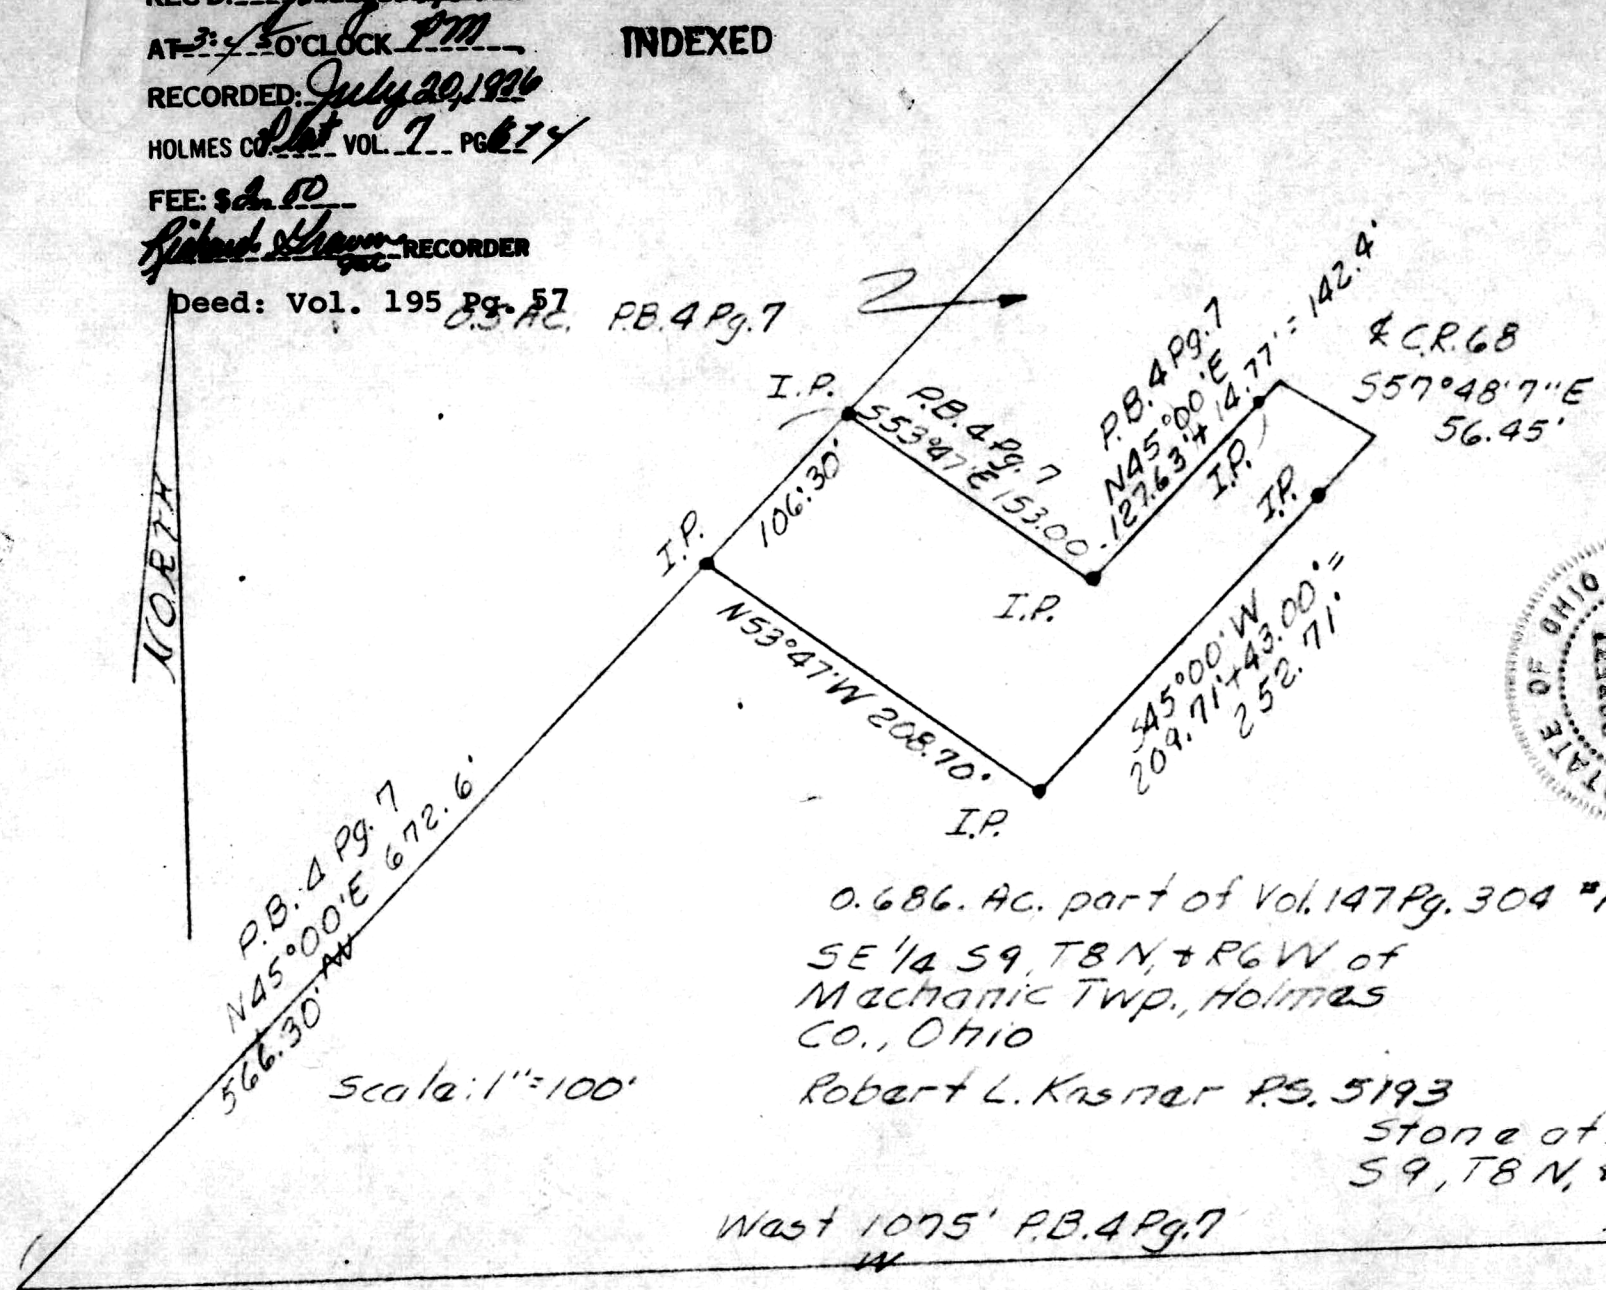 AT 3:45 O'CLOCK PM
INDEXED
RECORDED: July 20, 1976
HOLMES CO. Plat VOL. 7 PG 674
FEE: $2.50
RECORDER
Deed: Vol. 195 Pg. 57
0.5 Ac. P.B.4 Pg.7
NORTH
I.P.
P.B.4 Pg.7
S53°47'E 153.00
P.B.4 Pg.7
N45°00'E
127.63'+14.77'=142.4'
I.P.
℄ C.R.68
S57°48'7"E
56.45'
I.P.
106.30'
I.P.
I.P.
N53°47'W 208.70'
S45°00'W
209.71'+43.00'=
252.71'
I.P.
STATE OF OHIO
P.B.4 Pg.7
N45°00'E 672.6'
566.30'
0.686. Ac. part of Vol.147 Pg.304
SE 1/4 S9, T8N, & R6W of
Mechanic Twp., Holmes
Co., Ohio
Scale: 1"=100'
Robert L. Kasner P.S. 5193
Stone at
S9, T8N,
West 1075' P.B.4 Pg.7
W